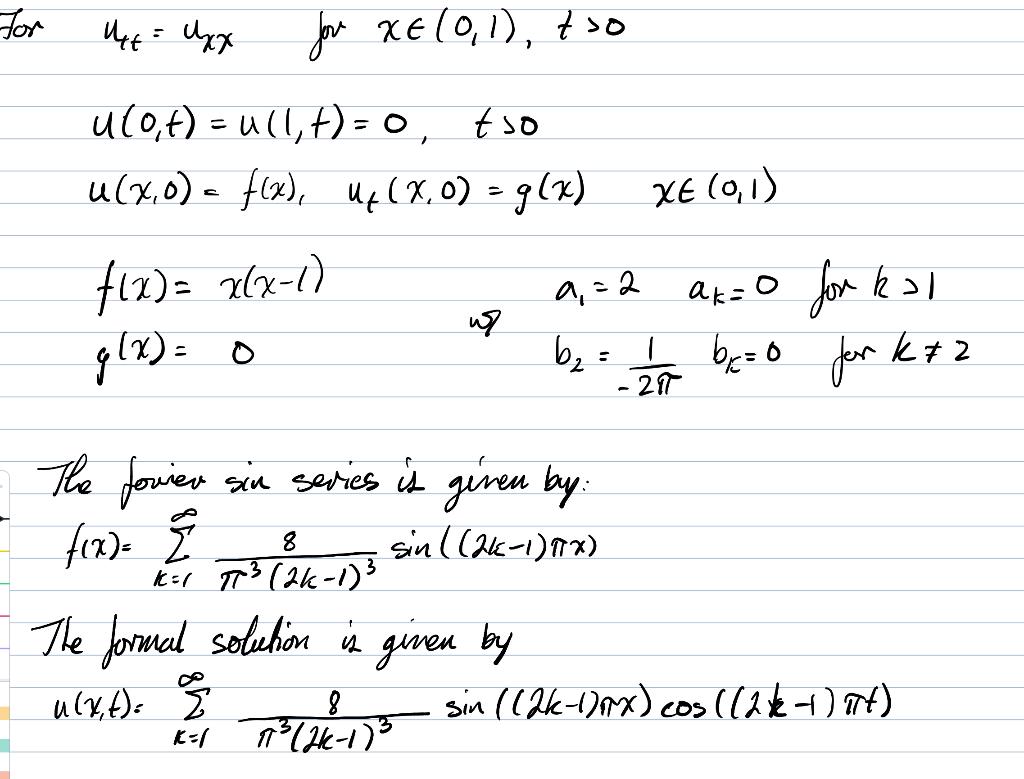 For u_tt = u_xx for x ∈ (0,1), t > 0
u(0,t) = u(1,t) = 0, t > 0
u(x,0) = f(x), u_t(x,0) = g(x) x ∈ (0,1)
f(x) = x(x-1) a_1 = 2 a_k = 0 for k > 1
g(x) = 0 w/ b_2 = 1/(-2π) b_k = 0 for k ≠ 2
The fourier sin series is given by:
f(x) = ∑_{k=1}^{∞} 8/(π^3(2k-1)^3) sin((2k-1)πx)
The formal solution is given by
u(x,t) = ∑_{k=1}^{∞} 8/(π^3(2k-1)^3) sin((2k-1)πx) cos((2k-1)πt)